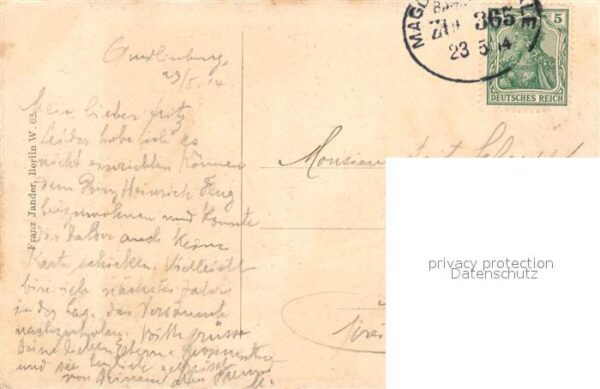 Quedlinburg,
23/5, 14.
Mein lieber Fritz
Leider habe ich es
nicht einrichten können
dem Prinz Heinrich Flug
beizuwohnen und konnte
dir daher auch keine
Karte schicken. Vielleicht
bin ich nächstes Jahr
in der Lage, das Versäumte
nachzuholen. Bitte grüsse
deine lieben Eltern
und sei herzlich gegrüsst
von Deinem alten
Franz Jander, Berlin W. 62.
MAGD
BAHN
ZUG 365
23 5 14
5
DEUTSCHES REICH
Monsieur
privacy protection
Datenschutz